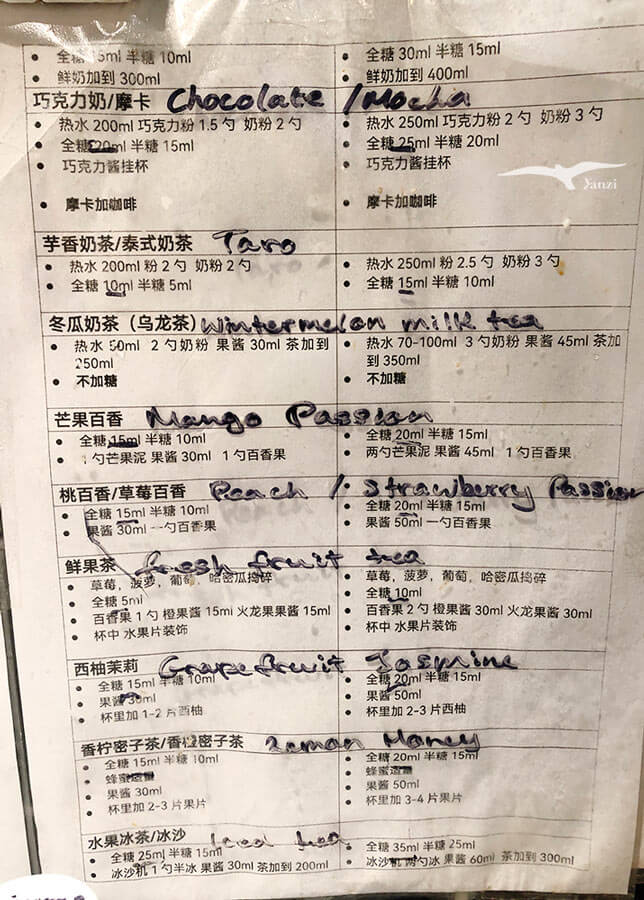 全糖 5ml 半糖 10ml
鲜奶加到 300ml
全糖 30ml 半糖 15ml
鲜奶加到 400ml
巧克力奶/摩卡 Chocolate /Mocha
热水 200ml 巧克力粉 1.5 勺 奶粉 2 勺
全糖20ml 半糖 15ml
巧克力酱挂杯
摩卡加咖啡
热水 250ml 巧克力粉 2 勺 奶粉 3 勺
全糖 25ml 半糖 20ml
巧克力酱挂杯
摩卡加咖啡
Yanzi
芋香奶茶/泰式奶茶 Taro
热水 200ml 粉 2 勺 奶粉 2 勺
全糖 10ml 半糖 5ml
热水 250ml 粉 2.5 勺 奶粉 3 勺
全糖 15ml 半糖 10ml
冬瓜奶茶（乌龙茶）Wintermelon milk tea
热水 50ml 2 勺奶粉 果酱 30ml 茶加到
250ml
不加糖
热水 70-100ml 3 勺奶粉 果酱 45ml 茶加
到 350ml
不加糖
芒果百香 Mango Passion
全糖 15ml 半糖 10ml
1 勺芒果泥 果酱 30ml 1 勺百香果
全糖 20ml 半糖 15ml
两勺芒果泥 果酱 45ml 1 勺百香果
桃百香/草莓百香 Peach / Strawberry Passion
全糖 15ml 半糖 10ml
果酱 30ml 一勺百香果
全糖 20ml 半糖 15ml
果酱 50ml 一勺百香果
鲜果茶 fresh fruit tea
草莓，菠萝，葡萄，哈密瓜捣碎
全糖 5ml
百香果 1 勺 橙果酱 15ml 火龙果果酱 15ml
杯中 水果片装饰
草莓，菠萝，葡萄，哈密瓜捣碎
全糖 10ml
百香果 2 勺 橙果酱 30ml 火龙果果酱 30ml
杯中 水果片装饰
西柚茉莉 Grapefruit Jasmine
全糖 15ml 半糖 10ml
果酱 30ml
杯里加 1-2 片西柚
全糖 20ml 半糖 15ml
果酱 50ml
杯里加 2-3 片西柚
香柠密子茶/香橙密子茶 Leman Honey
全糖 15ml 半糖 10ml
蜂蜜适量
果酱 30ml
杯里加 2-3 片果片
全糖 20ml 半糖 15ml
蜂蜜适量
果酱 50ml
杯里加 3-4 片果片
水果冰茶/冰沙 Iced tea
全糖 25ml 半糖 15ml
冰沙机 1 勺半冰 果酱 30ml 茶加到 200ml
全糖 35ml 半糖 25ml
冰沙机 两勺冰 果酱 60ml 茶加到 300ml